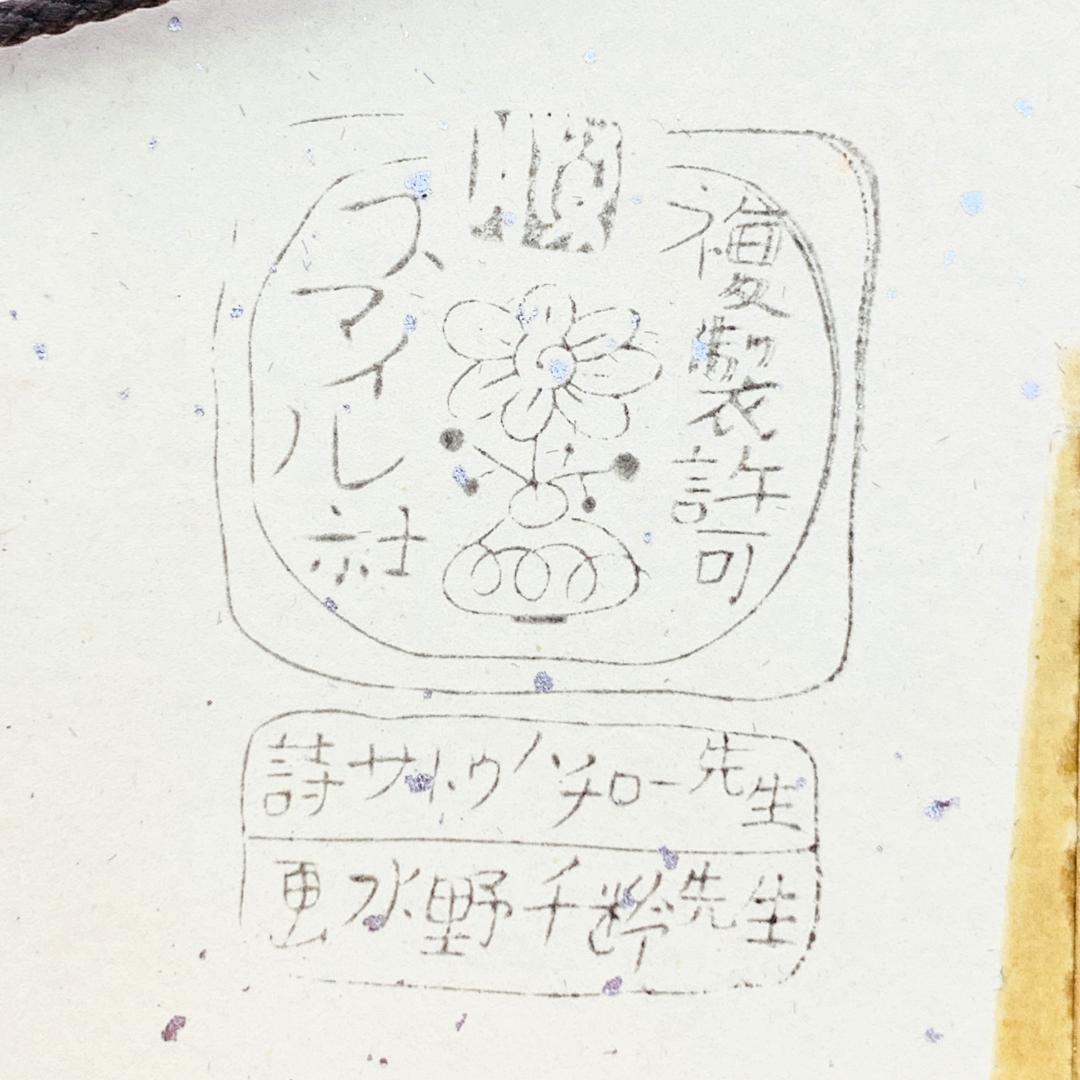 複製許可
スマイル社
詩サトウハチロー先生
画水野千齢先生